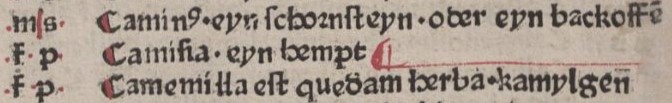 .m|s. Caminꝰ·eyn schornsteyn·oder eyn backoffē
.f·p· Camisia·eyn hempt
.f·p· Camemilla est quedam herba·kamylgen̄